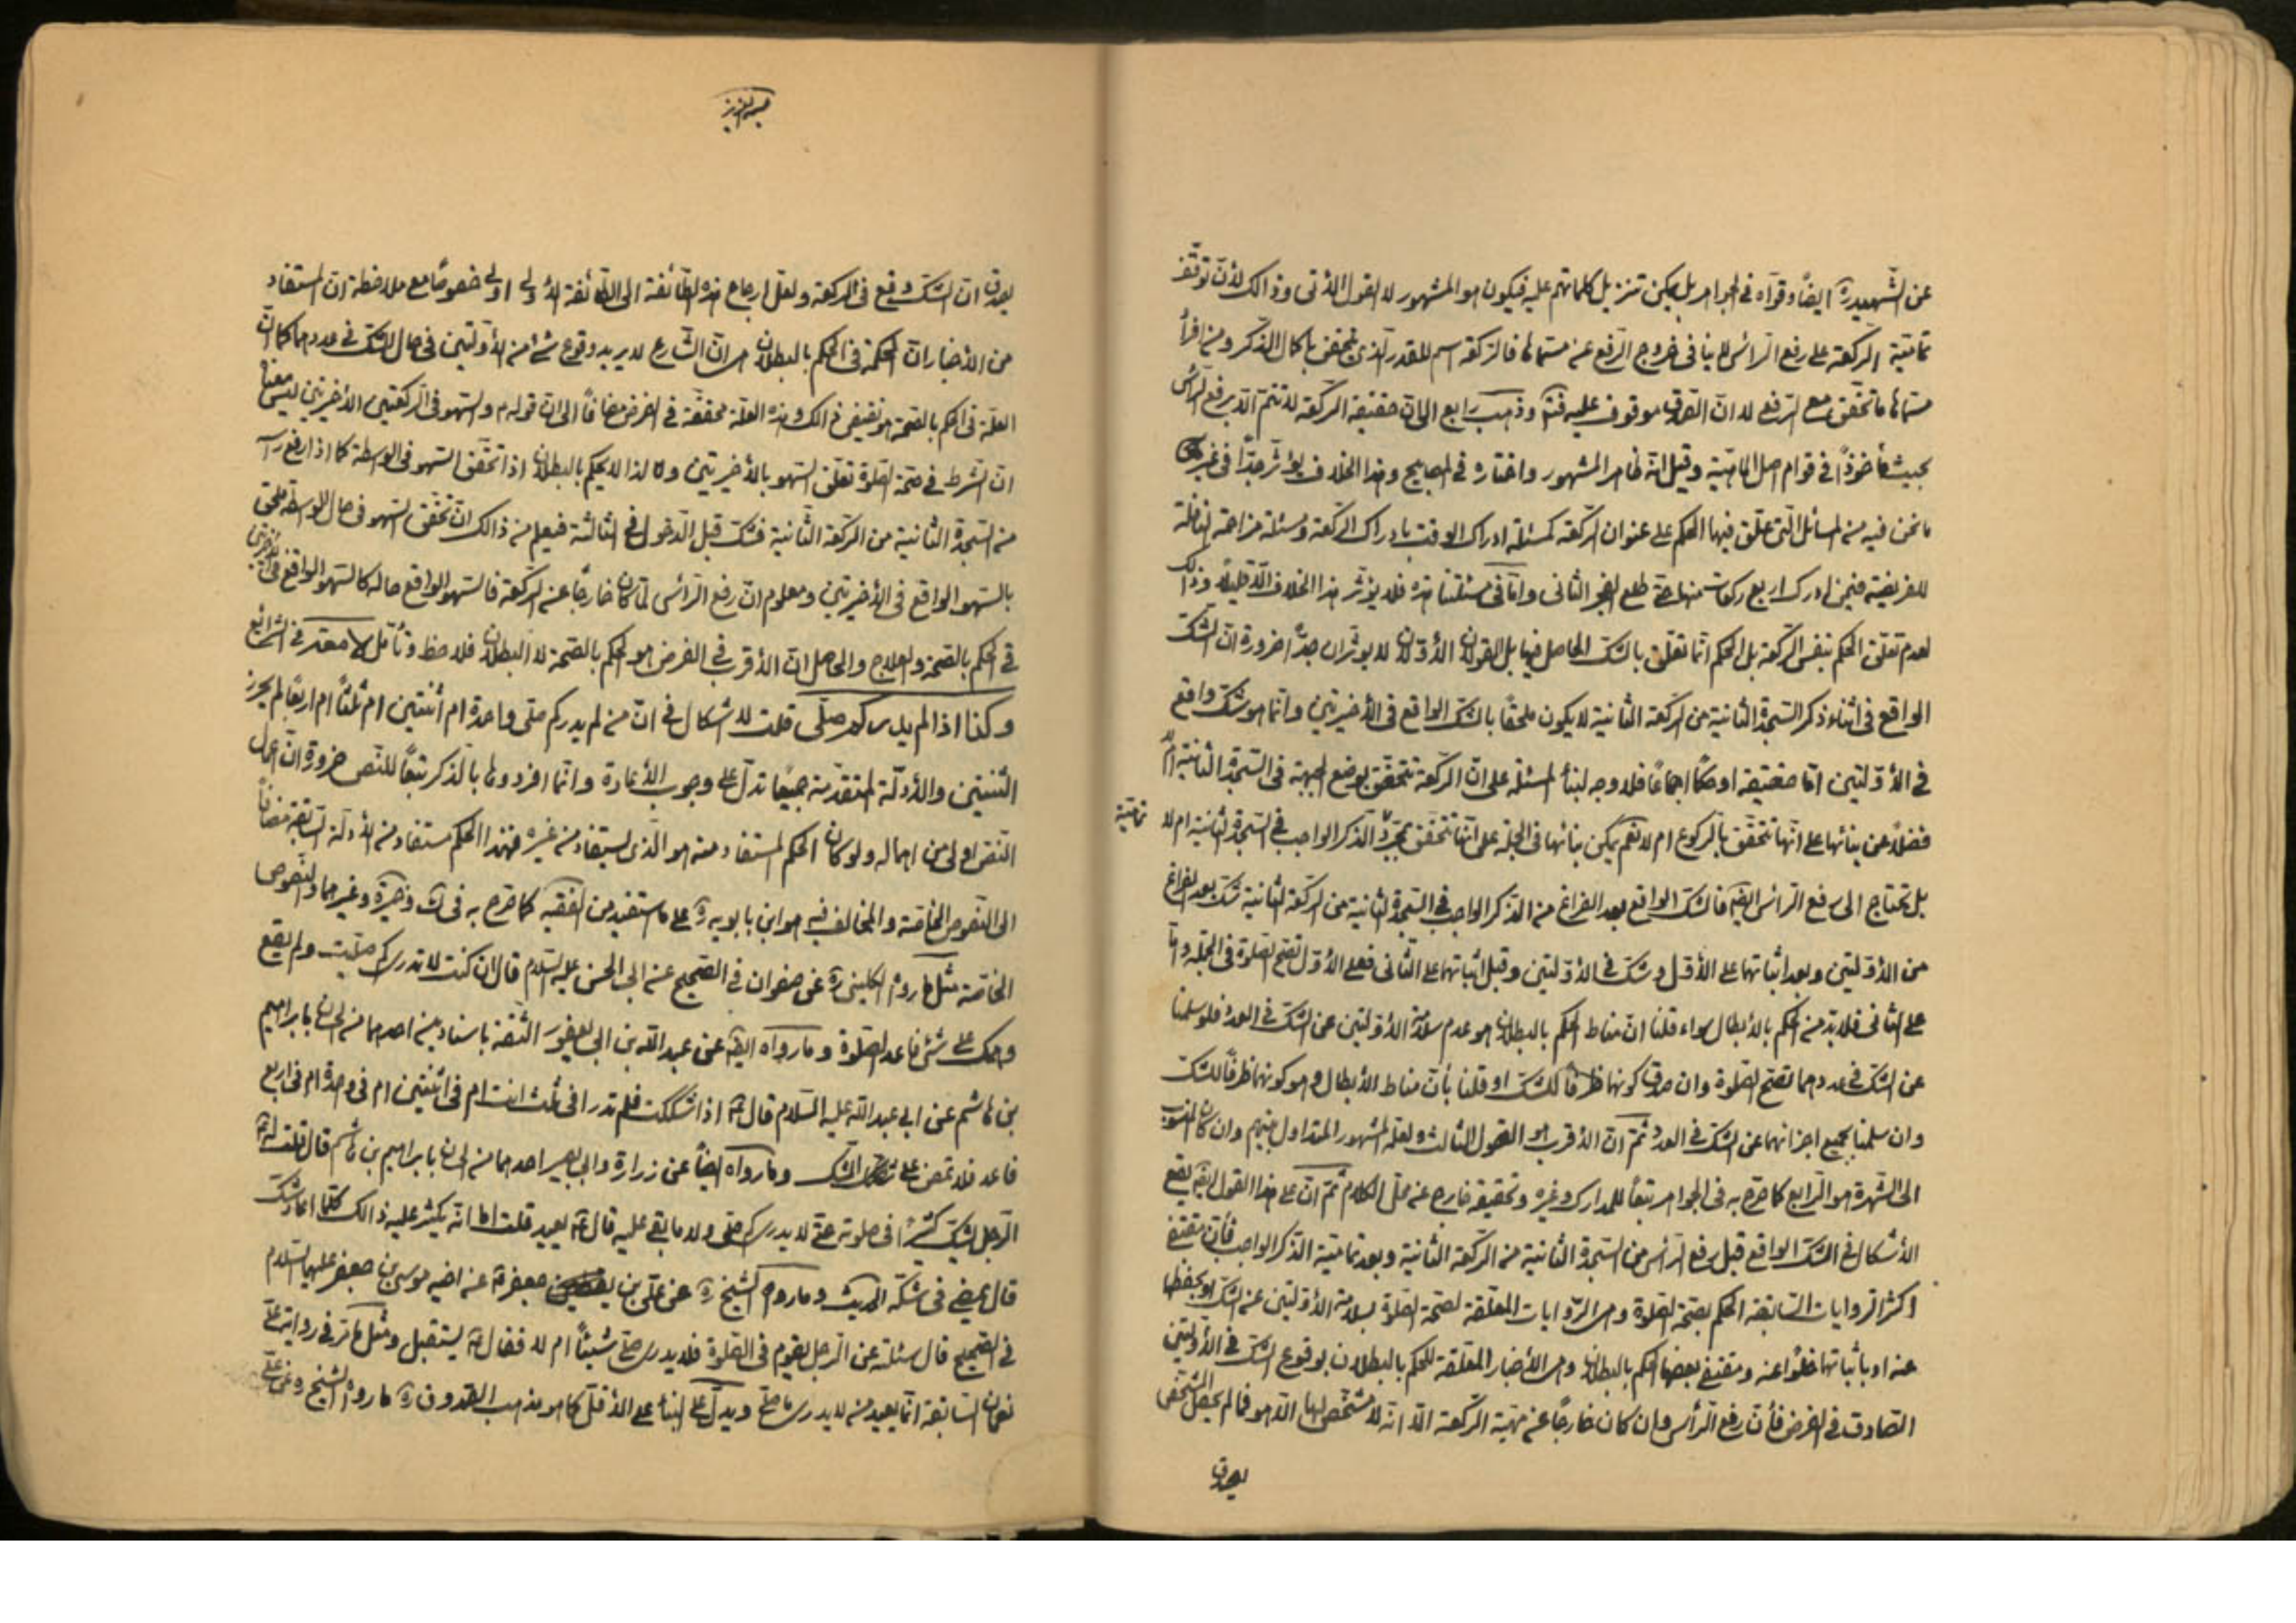 عن الشهيد ره ايضاً وقواه في الجواهر بل يمكن تنزيل كلماتهم عليه فيكون هو المشهور لا القول الآتي وذالك لأن توقف
تمامية الركعة على رفع الرأس لا ينافي خروج الرفع عن مسماها فالركعة اسم للمقدر الذي يتحقق باكمال الذكر ومن افراد
مسماها ما تحقق مع الرفع لا ان الصدق موقوف عليه فتم وذهب رابع الى ان حقيقة الركعة لا تتم الا برفع الرأس
بحيث مأخوذاً في قوام اصل الماهية وقيل انه ظاهر المشهور واختاره في المصابيح وهذا الخلاف يؤثر جداً في غير
ما نحن فيه من المسائل التي علق فيها الحكم على عنوان الركعة كمسئلة ادراك الوقت بادراك الركعة ومسئلة مزاحمة النافلة
للفريضة فيمن ادرك اربع ركعات منها حتى طلع الفجر الثاني واما في مسئلتنا هذه فلا يؤثر هذا الخلاف الا قليلاً وذلك
لعدم تعلق الحكم بنفس الركعة بل الحكم انما تعلق بالشك الحاصل فيها بل القولان الأولان لا يؤثران جداً ضرورة ان الشك
الواقع في اثناء ذكر السجدة الثانية من الركعة الثانية لا يكون ملحقاً بالشك الواقع في الأخيرتين وانما هو شك واقع
في الأولتين اما حقيقة او حكماً اجماعاً فلا وجه لبناء المسئلة على ان الركعة تتحقق بوضع الجبهة في السجدة الثانية ام لا
فضلاً عن بنائها على انها تتحقق بالركوع ام لا نعم يمكن بنائها في الجملة على انها تتحقق بمجرد الذكر الواجب في السجدة الثانية ام لا
تمامية
بل تحتاج الى رفع الرأس ايضاً فالشك الواقع بعد الفراغ من الذكر الواجب في السجدة الثانية من الركعة الثانية شك بعد الفراغ
من الأولتين وبعد اثباتهما على الأول وشك في الأولتين وقبل اثباتهما على الثاني فعلى الأول تصح الصلوة في الجملة واما
على الثاني فلا بد من الحكم بالأبطال سواء قلنا ان مناط الحكم بالبطلان هو عدم سلامة الأولتين عن الشك في العدد فلو سلمتا
عن الشك في عددهما تصح الصلوة وان صدق كونهما ظرفاً للشك او قلنا بأن مناط الأبطال هو كونهما ظرفاً للشك
وان سلمتا بجميع اجزائهما عن الشك في العدد ثم ان الأقرب هو القول الثالث ولعله المشهور المتداول بينهم وان كان المنسوب
الى الشهرة هو الرابع كما صرح به في الجواهر تبعاً للمدارك وغيره وتحقيقه خارج عن محل الكلام ثم ان على هذا القول ايضاً يقع
الأشكال في الشك الواقع قبل رفع الرأس من السجدة الثانية من الركعة الثانية وبعد تمامية الذكر الواجب فأن مقتضى
اكثر الروايات السابقة الحكم بصحة الصلوة وهي الروايات المعلقة لصحة الصلوة بسلامة الأولتين عن الشك او بحفظهما
عنه او باثباتهما خلوا عنه ومقتضى بعضها الحكم بالبطلان وهي الأخبار المعلقة للحكم بالبطلان بوقوع الشك في الأولتين
الصادق في الفرض فأن رفع الرأس وان كان خارجاً عن مهية الركعة الا انه لا مشخص لها الا هو فما لم يحصل المشخص
يصدق
يصدق ان الشك وقع في الركعة ولعل ارجاع هذه الطائفة الى الطائفة الأولى اولى خصوصاً مع ملاحظة ان المستفاد
من الأخبار ان الحكمة في الحكم بالبطلان هي ان الشارع لا يريد وقوع شئ من الأولتين في حال الشك في عددهما كما ان
العلة في الحكم بالصحة هو نقيض ذالك وهذه العلة محققة في الفرض مضافاً الى ان قوله م والسهو في الركعتين الأخيرتين ليس معناه
ان الشرط في صحة الصلوة تعلق السهو بالأخيرتين ولذا لا يحكم بالبطلان اذا تحقق السهو في الواسطة كما اذا رفع رأسه
من السجدة الثانية من الركعة الثانية فشك قبل الدخول في الثالثة فيعلم من ذالك ان تحقق السهو في حال الواسطة ملحق
بالسهو الواقع في الأخيرتين ومعلوم ان رفع الرأس لما كان خارجاً عن الركعة فالسهو الواقع حاله كالسهو الواقع في الأخيرتين
في الحكم بالصحة والعلاج والحاصل ان الأقرب في الفرض هو الحكم بالصحة لا البطلان فلاحظ وتأمل في الشرايع
وكذا اذا لم يدر كم صلى قلت لا اشكال في ان من لم يدر كم صلى واحدة ام اثنتين ام ثلثاً ام اربعاً لم يحرز
الثنتين والأدلة المتقدمة جميعاً تدل على وجوب الأعادة وانما افردوها بالذكر تبعاً للنص ضرورة ان اعمال
النص اولى من اهماله ولو كان الحكم المستفاد منه هو الذي يستفاد من غيره فهذا الحكم مستفاد من الأدلة السابقة مضافاً
الى النصوص الخاصة والمخالف فيه هو ابن بابويه ره على ما استفيد من الفقيه كما صرح به في وغيرهما والنصوص
الخاصة مثل ما رواه الكليني ره عن صفوان في الصحيح عن ابي الحسن عليه السلام قال ان كنت لا تدري كم صليت ولم يقع
وهمك على شئ فاعد الصلوة وما رواه ايضاً عن عبد الله بن ابي يعفور الثقة باسنادين احدهما حسن بابراهيم
بن هاشم عن ابي عبد الله عليه السلام قال اذا شككت فلم تدر افي ثلث انت ام في اثنتين ام في واحدة ام في اربع
فاعد فلا تمض على الشك وما رواه ايضاً عن زرارة وابي بصير احدهما حسن بابراهيم بن هاشم قال قلت له
الرجل يشك كثيراً في صلوته حتى لا يدري كم صلى ولا ما بقى عليه قال يعيد قلت انه يكثر عليه ذالك كلما اعاد شك
قال يمضي في شكه الحديث وما رواه الشيخ ره عن علي بن جعفر عن اخيه موسى بن جعفر عليهما السلام
في الصحيح قال سئلته عن الرجل يقوم في الصلوة فلا يدري صلى شيئاً ام لا فقال يستقبل ومثل ما مر في رواية علي
نعمان السابقة انما يعيد من لا يدري ما صلى ويدل على البناء على الأقل كما هو مذهب الصدوق ره ما رواه الشيخ ره عن علي